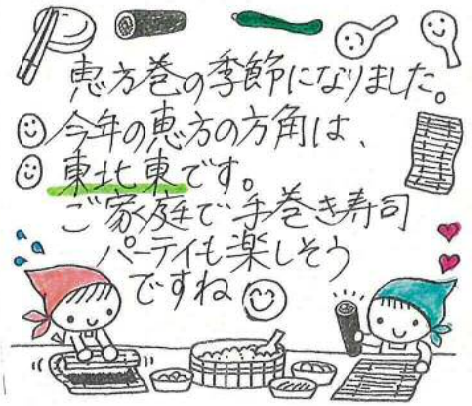 恵方巻の季節になりました。
今年の恵方の方角は、
東北東です。
ご家庭で手巻き寿司
パーティも楽しそう
ですね